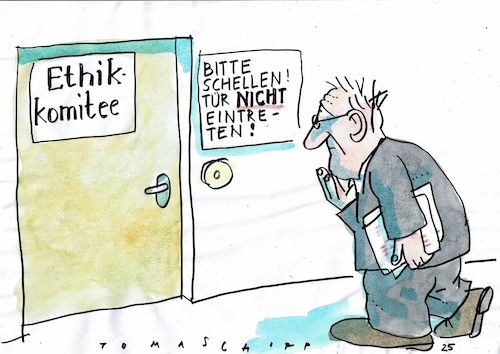 Ethik-
komitee
BITTE
SCHELLEN!
TÜR NICHT
EINTRE-
TEN!
TOMASCHEFF
25